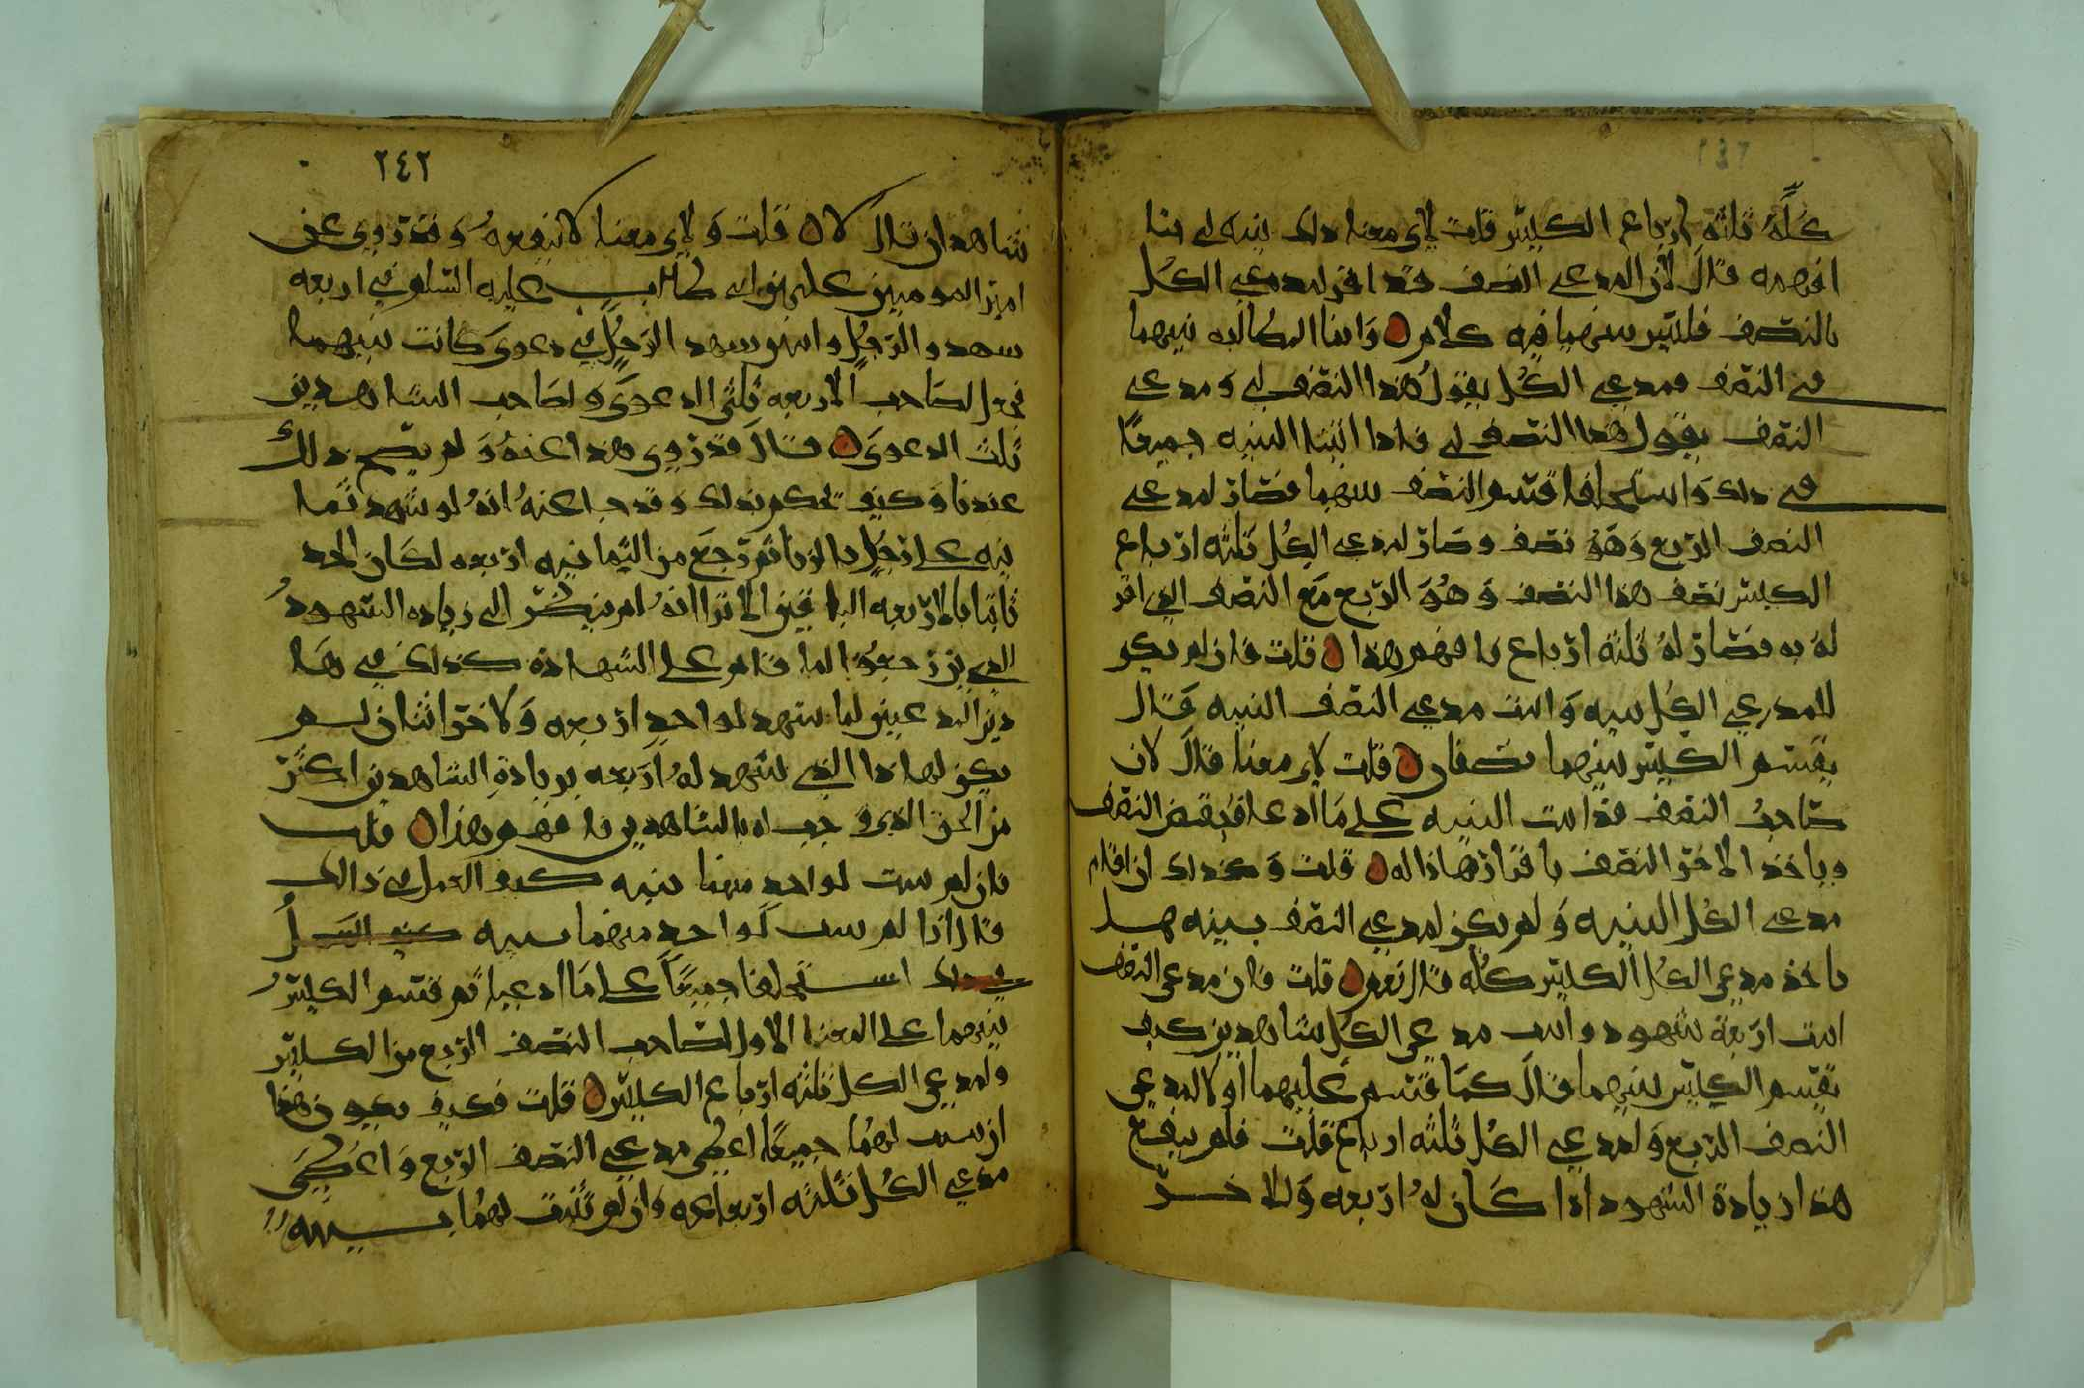 كله ثلثة ارباع الكليتر قلت لاي معنا دلك بينه لي هنا
افهمه قال لان المدعي النصف قد اقر لمدعي الكل
بالنصف فليس بينهما فيه كلام وانما المطالبه بينهما
في النصف فمدعي الكل يقول هذا النصف لي ومدعي
النصف يقول هذا النصف لي فاذا اثبتا البينه جميعا
في دلك واستحلفا قسم النصف بينهما فصار لمدعي
النصف الربع وهو نصف وصار لمدعي الكل ثلثه ارباع
الكليتر نصف هذا النصف وهو الربع مع النصف الدي اقر
له به فصار له ثلثه ارباع فافهم هذا قلت فان لم يكن
للمدعي الكل بينه واثبت مدعي النصف البينه قال
يقسم الكليتر بينهما نصفان قلت لاي معنا قال لان
صاحب النصف قد اثبت البينه على ما ادعا فيقبض النصف
وياخذ الاخر النصف باقرار هاذا له قلت وكذلك ان اقام
مدعي الكل البينه ولم يكن لمدعي النصف بينه هل
ياخذ مدعي الكل الكليتر كله قال نعم قلت فان مدعي النصف
اثبت اربعة شهود واثبت مدعي الكل شاهدين كيف
تقسم الكليتر بينهما قال كما قسم عليهما اولا لمدعي
النصف الربع ولمدعي الكل ثلثه ارباع قلت فلم ينفع
هذا زيادة الشهود اذا كان له اربعه وللاخر
٢٤٢
شاهدان قال لا قلت ولاي معنا لا ينفعه وقد روي عن
امير المومنين علي بن ابي طالب عليه السلام في اربعه
شهدوا لرجل واثنين شهدا لرجل في دعوى كانت بينهما
فجعل لصاحب الاربعه ثلثي الدعوى ولصاحب الشاهدين
ثلث الدعوى قال قد روي هذا عنه ولم يصح دلك
عندنا وكيف يحكم بذلك وقد جا عنه انه لو شهد ثما
نيه على رجل بالزنا ثم رجع من الثمانيه اربعه لكان الحد
ثابتا بالاربعه الباقين الا ترا انه لم ينظر الى زياده الشهود
الدين رجعوا لما قام على الشهاده كذلك في هـا
ذين المدعيين لما شهد لواحد اربعه ولاخر اثنان لم
يكن لهاذا الذي شهد له اربعه بزيادة الشاهدين اكثر
من الحق الذي وجب له بالشاهدين فافهم هذا قلت
فان لم يثبت لواحد منهما بينه كيف العمل في ذالك
قال اذا لم يثبت لواحد منهما بينه
استحلفا جميعا على ما ادعيا ثم قسم الكليتر
بينهما على المعنا الاول لصاحب النصف الربع من الكليتر
ولمدعي الكل ثلثه ارباع الكليتر قلت فكيف يكون هذا
ان ثبت لهما جميعا اعطي مدعي النصف الربع واعطي
مدعي الكل ثلثه ارباعه وان لم تثبت لهما بينه